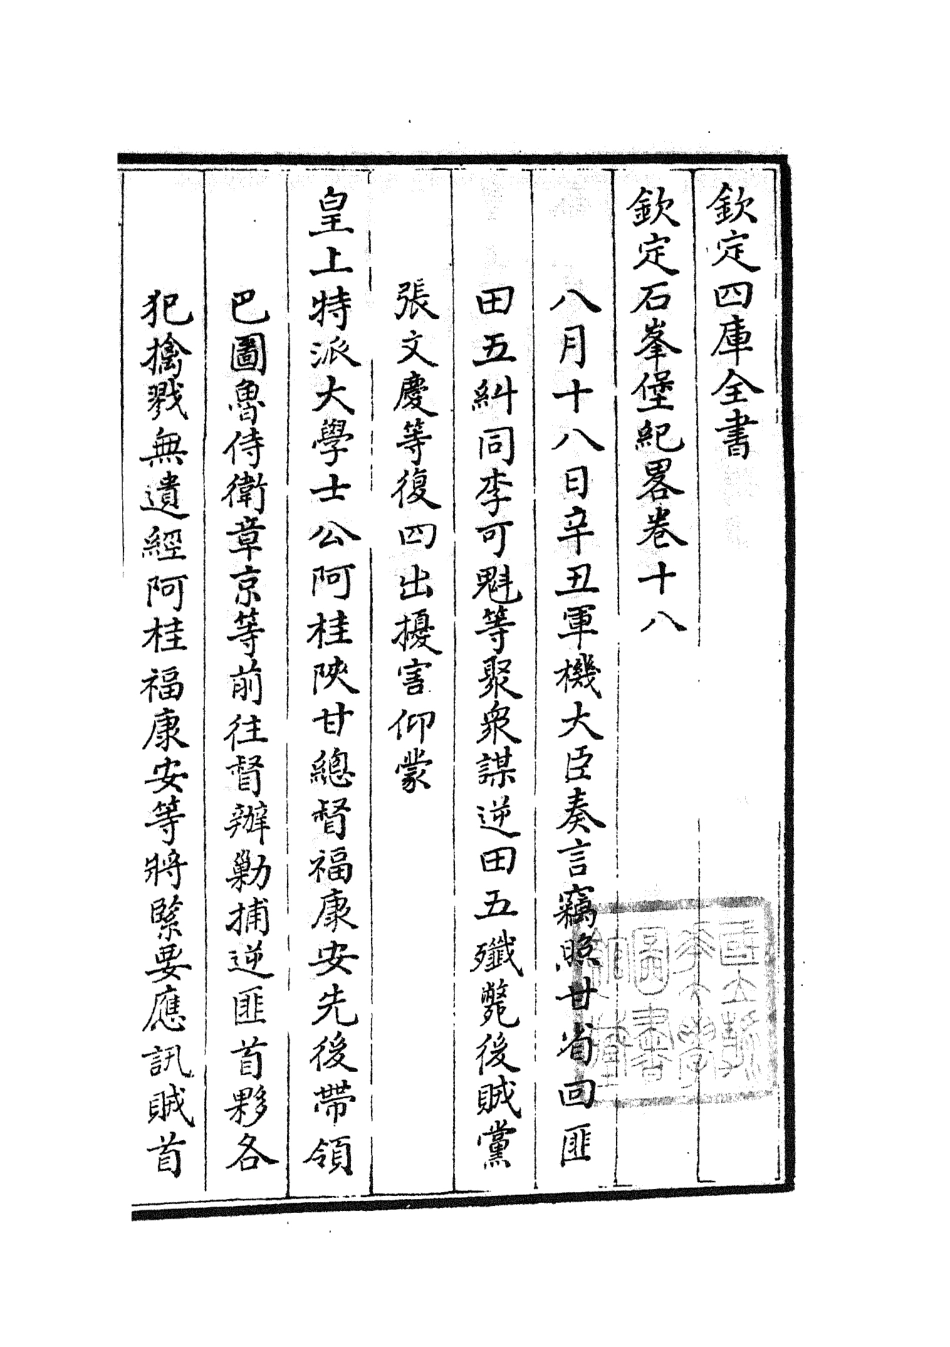 欽定四庫全書
欽定石峯堡紀畧卷十八
八月十八日辛丑軍機大臣奏言竊照甘省回匪
田五糾同李可魁等聚衆謀逆田五殲斃後賊黨
張文慶等復四出擾害仰蒙
皇上特派大學士公阿桂陝甘總督福康安先後帶領
巴圖魯侍衛章京等前往督辦勦捕逆匪首夥各
犯擒戮無遺經阿桂福康安等將緊要應訊賊首